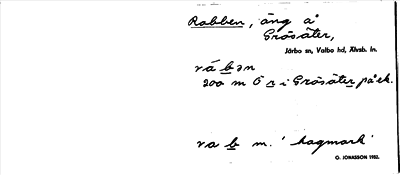 Rabben, äng å
Gräsäter,
Järbo sn, Valbo hd, Älvsb. ln.
rábən
200 m Ö n i Gräsäter på ek.
rab m. 'hagmark'
G. JONASSON 1932.